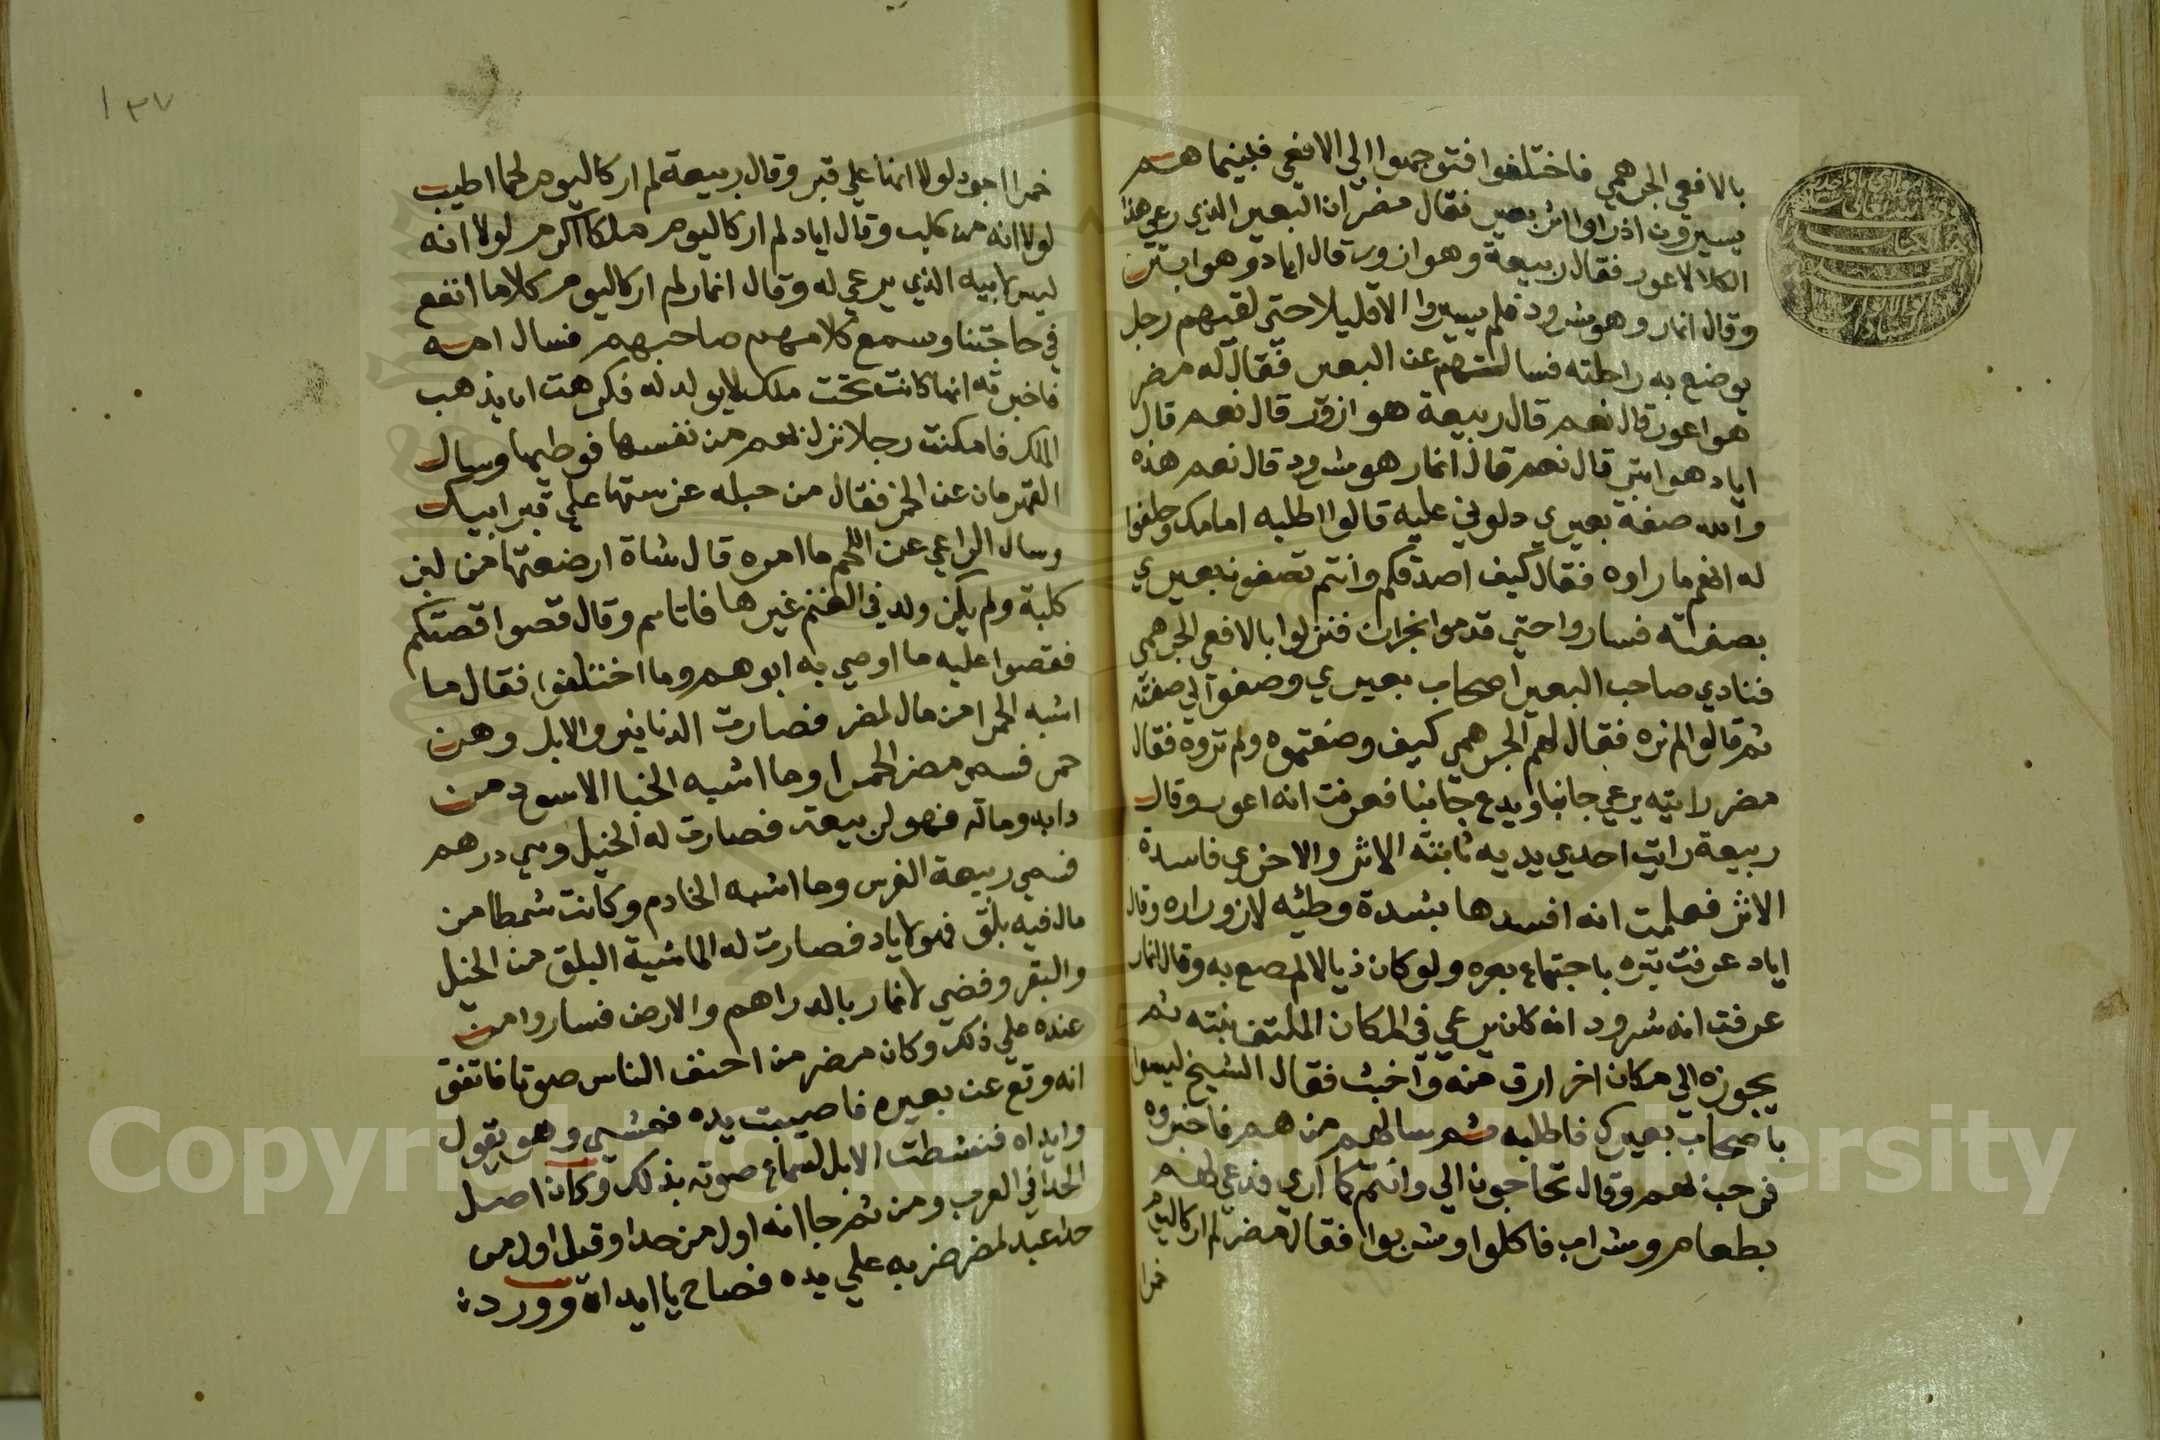 بالافعي الجرهمي فاختلفوا فتوجهوا الي الافعي فبينما هم
يسيرون اذ راوا اثر بعير فقال مضر ان البعير الذي رعي هذا
الكلا لاعور فقال ربيعة وهو ازور قال اياد وهو ابتر
وقال انمار وهو شرود فلم يسيروا الا قليلا حتي لقيهم رجل
يوضع به راحلته فسالهم عن البعير فقال له مضر
هو اعور قال نعم قال ربيعة هو ازور قال نعم قال
اياد هو ابتر قال نعم قال انمار هو شرود قال نعم هذه
والله صفة بعيري دلوني عليه قالوا اطلبه امامك وحلفوا
له انهم ما راوه فقال كيف اصدقكم وانتم تصفون بعيري
بصفته فساروا حتي قدموا نجران فنزلوا بالافعي الجرهمي
فنادي صاحب البعير اصحاب بعيري وصفوا لي صفته
ثم قالوا لم نره فقال لهم الجرهمي كيف وصفتموه ولم تروه فقال
مضر رايته يرعي جانبا ويدع جانبا فعرفت انه اعور وقال
ربيعة رايت احدي يديه ثابتة الاثر والاخري فاسدة
الاثر فعلمت انه افسدها بشدة وطئه لازوراره وقال
اياد عرفت بتره باجتماع بعره ولو كان ذيالا لمصع به وقال انمار
عرفت انه شرود انه كان يرعي في المكان الملتف نبته ثم
يجوزه الي مكان اخر ارق منه واخبث فقال الشيخ ليسوا
باصحاب بعيرك فاطلبه ثم سالهم من هم فاخبروه
فرحب بهم وقال تحتاجون الي وانتم كما اري فدعي لهم
بطعام وشراب فاكلوا وشربوا فقال مضر لم ار كاليوم
خمرا
١٣٧
خمرا اجود لولا انها علي قبر وقال ربيعة لم ار كاليوم لحما اطيب
لولا انه من كلب وقال اياد لم ار كاليوم ملكا اكرم لولا انه
ليس لابيه الذي يدعي له وقال انمار لم ار كاليوم كلاما انفع
في حاجتنا وسمع كلامهم صاحبهم فسال امه
فاخبرته انها كانت تحت ملك لا يولد له فكرهت ان يذهب
الملك فامكنت رجلا نزل بهم من نفسها فوطيها وسال
القهرمان عن الخمر فقال من حبله غرستها علي قبر ابيك
وسال الراعي عن اللحم ما امره قال شاة ارضعتها من لبن
كلبة ولم يكن ولد في الغنم غيرها فاتاهم وقال قصوا قصتكم
فقصوا عليه ما اوصي به ابوهم وما اختلفوا فقال ما
اشبه الحمرا من مال لمضر فصارت الدنانير والابل وهن
حمر فسمي مضر الحمرا وما اشبه الخبا الاسود من
دابه وماله فهو لربيعة فصارت له الخيل وهي درهم
فسمي ربيعة الفرس وما اشبه الخادم وكانت شمطا من
مال فيه بلق فهو لاياد فصارت له الماشية البلق من الخيل
والبقر وقضي لانمار بالدراهم والارض فساروا من
عنده علي ذلك وكان مضر من احنف الناس صوتا فاتفق
انه وقع عن بعيره فاصيبت يده فمشي وهو يقول
وايداه فنشطت الابل لسماع صوته بذلك وكان اصل
الحدا في العرب ومن ثم جا انه اول من حدا وقيل اول من
حدا عبد لمضر ضربه علي يده فصاح يا ايداه وورد :
Copyright © King Saud University